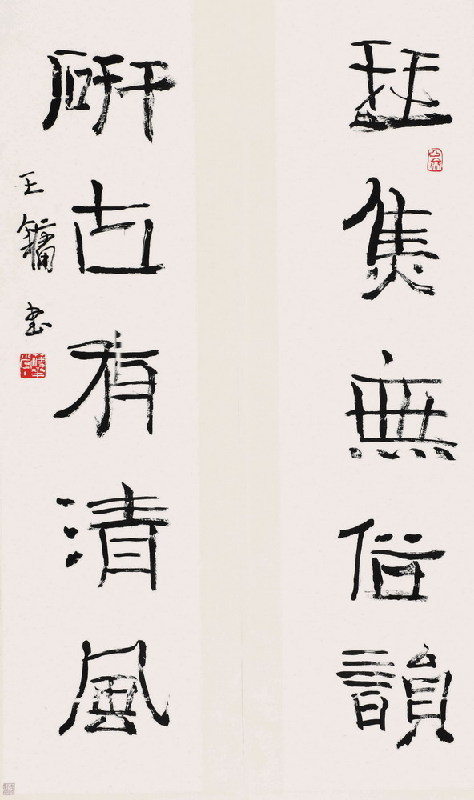 雅集無俗韻
研古有清風
王鏞書